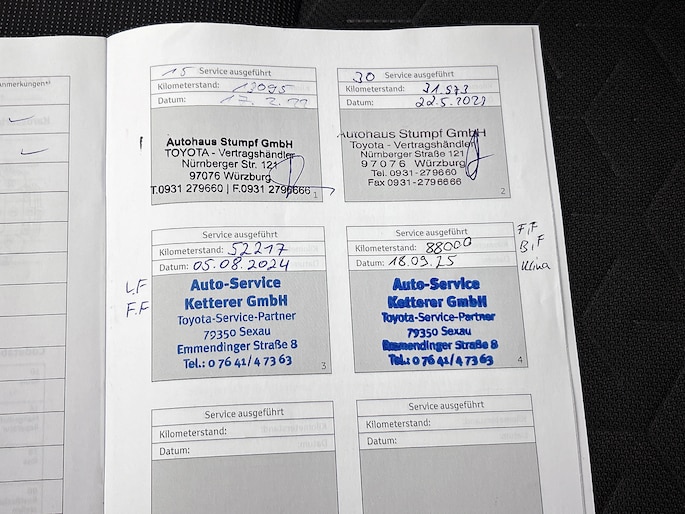 nmerkungen*⁾
15 Service ausgeführt
Kilometerstand:
Datum: 17.2.
Autohaus Stumpf GmbH
TOYOTA - Vertragshändler
Nürnberger Str. 121
97076 Würzburg
T.0931 279660 | F.0931 2796666
1
30 Service ausgeführt
Kilometerstand: 31.573
Datum: 22.5.
Autohaus Stumpf GmbH
Toyota - Vertragshändler
Nürnberger Straße 121
97076 Würzburg
Tel. 0931-279660
Fax 0931-2796666
2
Service ausgeführt
Kilometerstand: 52217
Datum: 05.08.2024
Auto-Service
Ketterer GmbH
Toyota-Service-Partner
79350 Sexau
Emmendinger Straße 8
Tel.: 0 76 41/4 73 63
3
L.F
F.F
Service ausgeführt
Kilometerstand: 88000
Datum: 18.09.25
Auto-Service
Ketterer GmbH
Toyota-Service-Partner
79350 Sexau
Emmendinger Straße 8
Tel.: 0 76 41/4 73 63
4
F.F
B.F
Klima
Service ausgeführt
Kilometerstand:
Datum:
Service ausgeführt
Kilometerstand:
Datum: